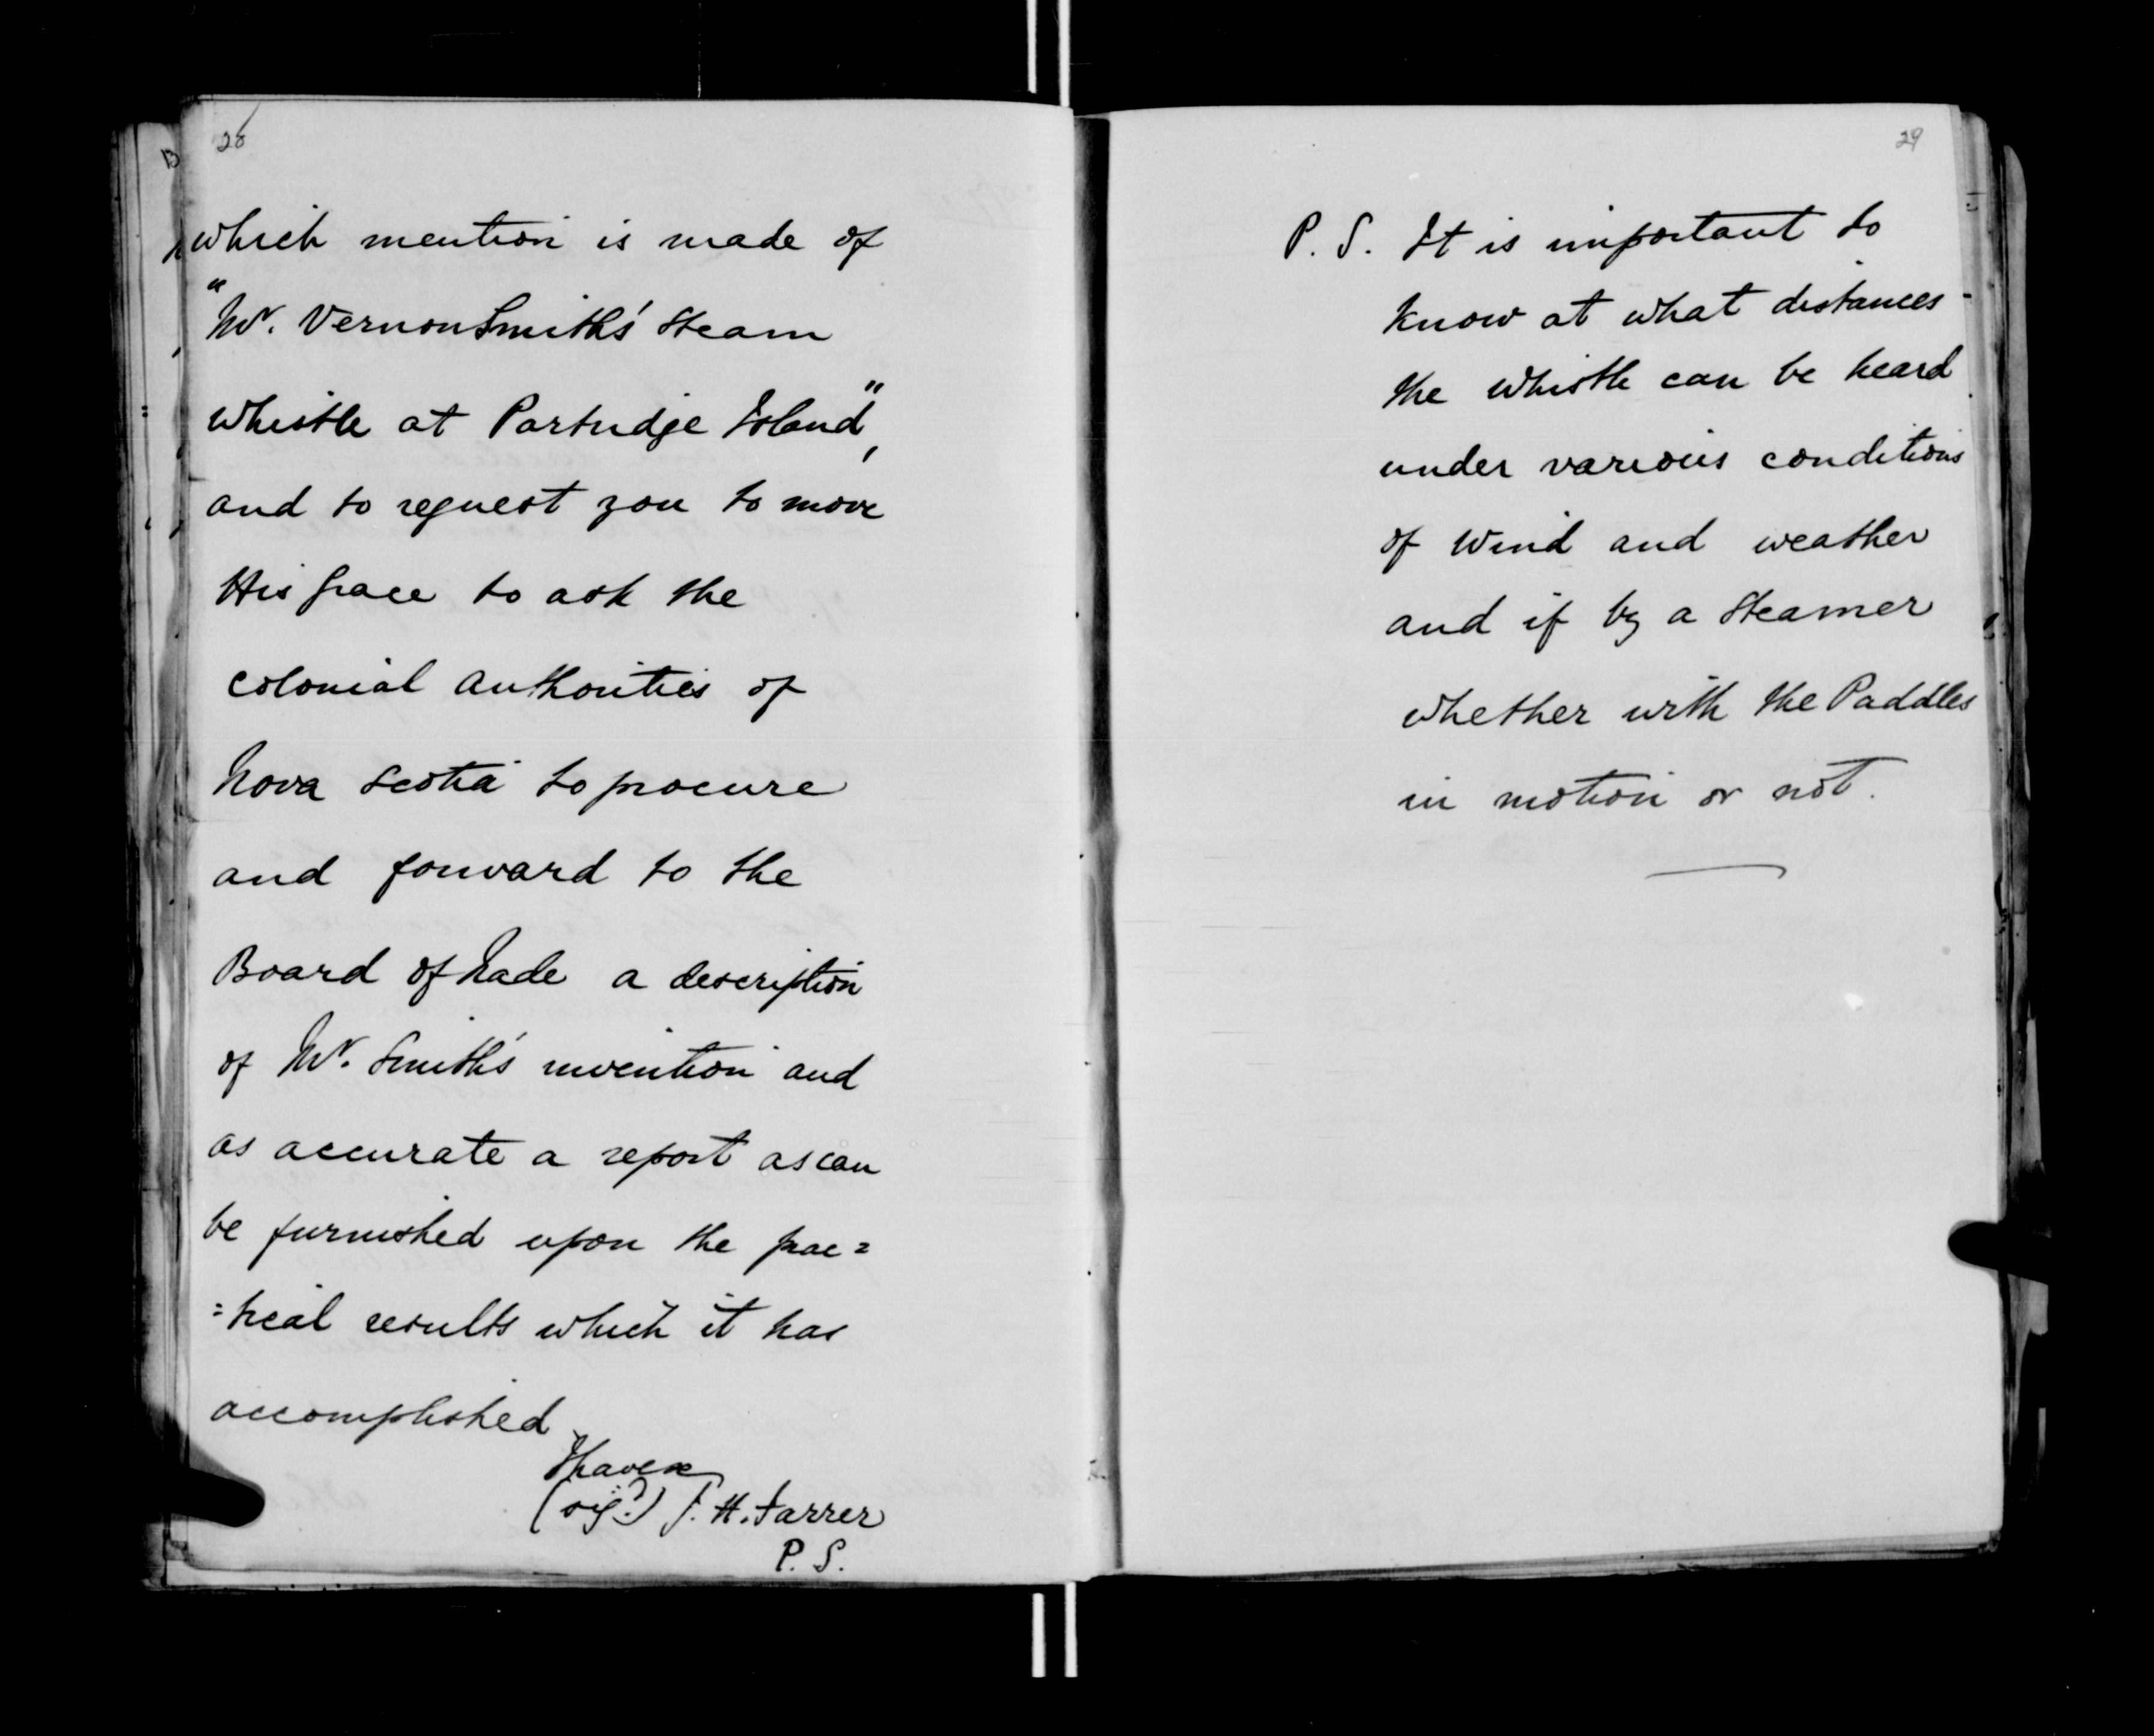 28
which mention is made of
"Mr. Vernon Smith's Steam
Whistle at Partridge Island",
and to request you to move
His Grace to ask the
colonial authorities of
Nova Scotia to procure
and forward to the
Board of Trade a description
of Mr. Smith's invention and
as accurate a report as can
be furnished upon the prac=
=tical results which it has
accomplished
I have &c
(sigd.) T. H. Farrer
P. S.
29
P. S. It is important to
know at what distances
the whistle can be heard
under various conditions
of Wind and weather
and if by a Steamer
whether with the Paddles
in motion or not.